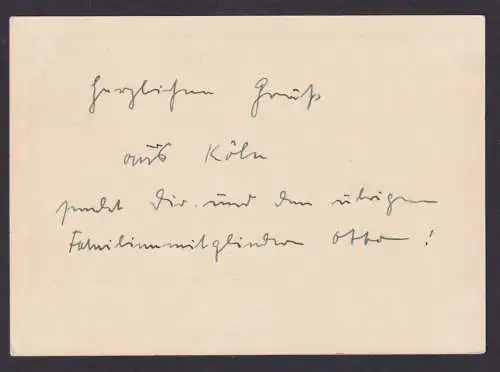 Herzlichen Gruß
aus Köln
sendet Dir und den übrigen
Familienmitgliedern Otto !